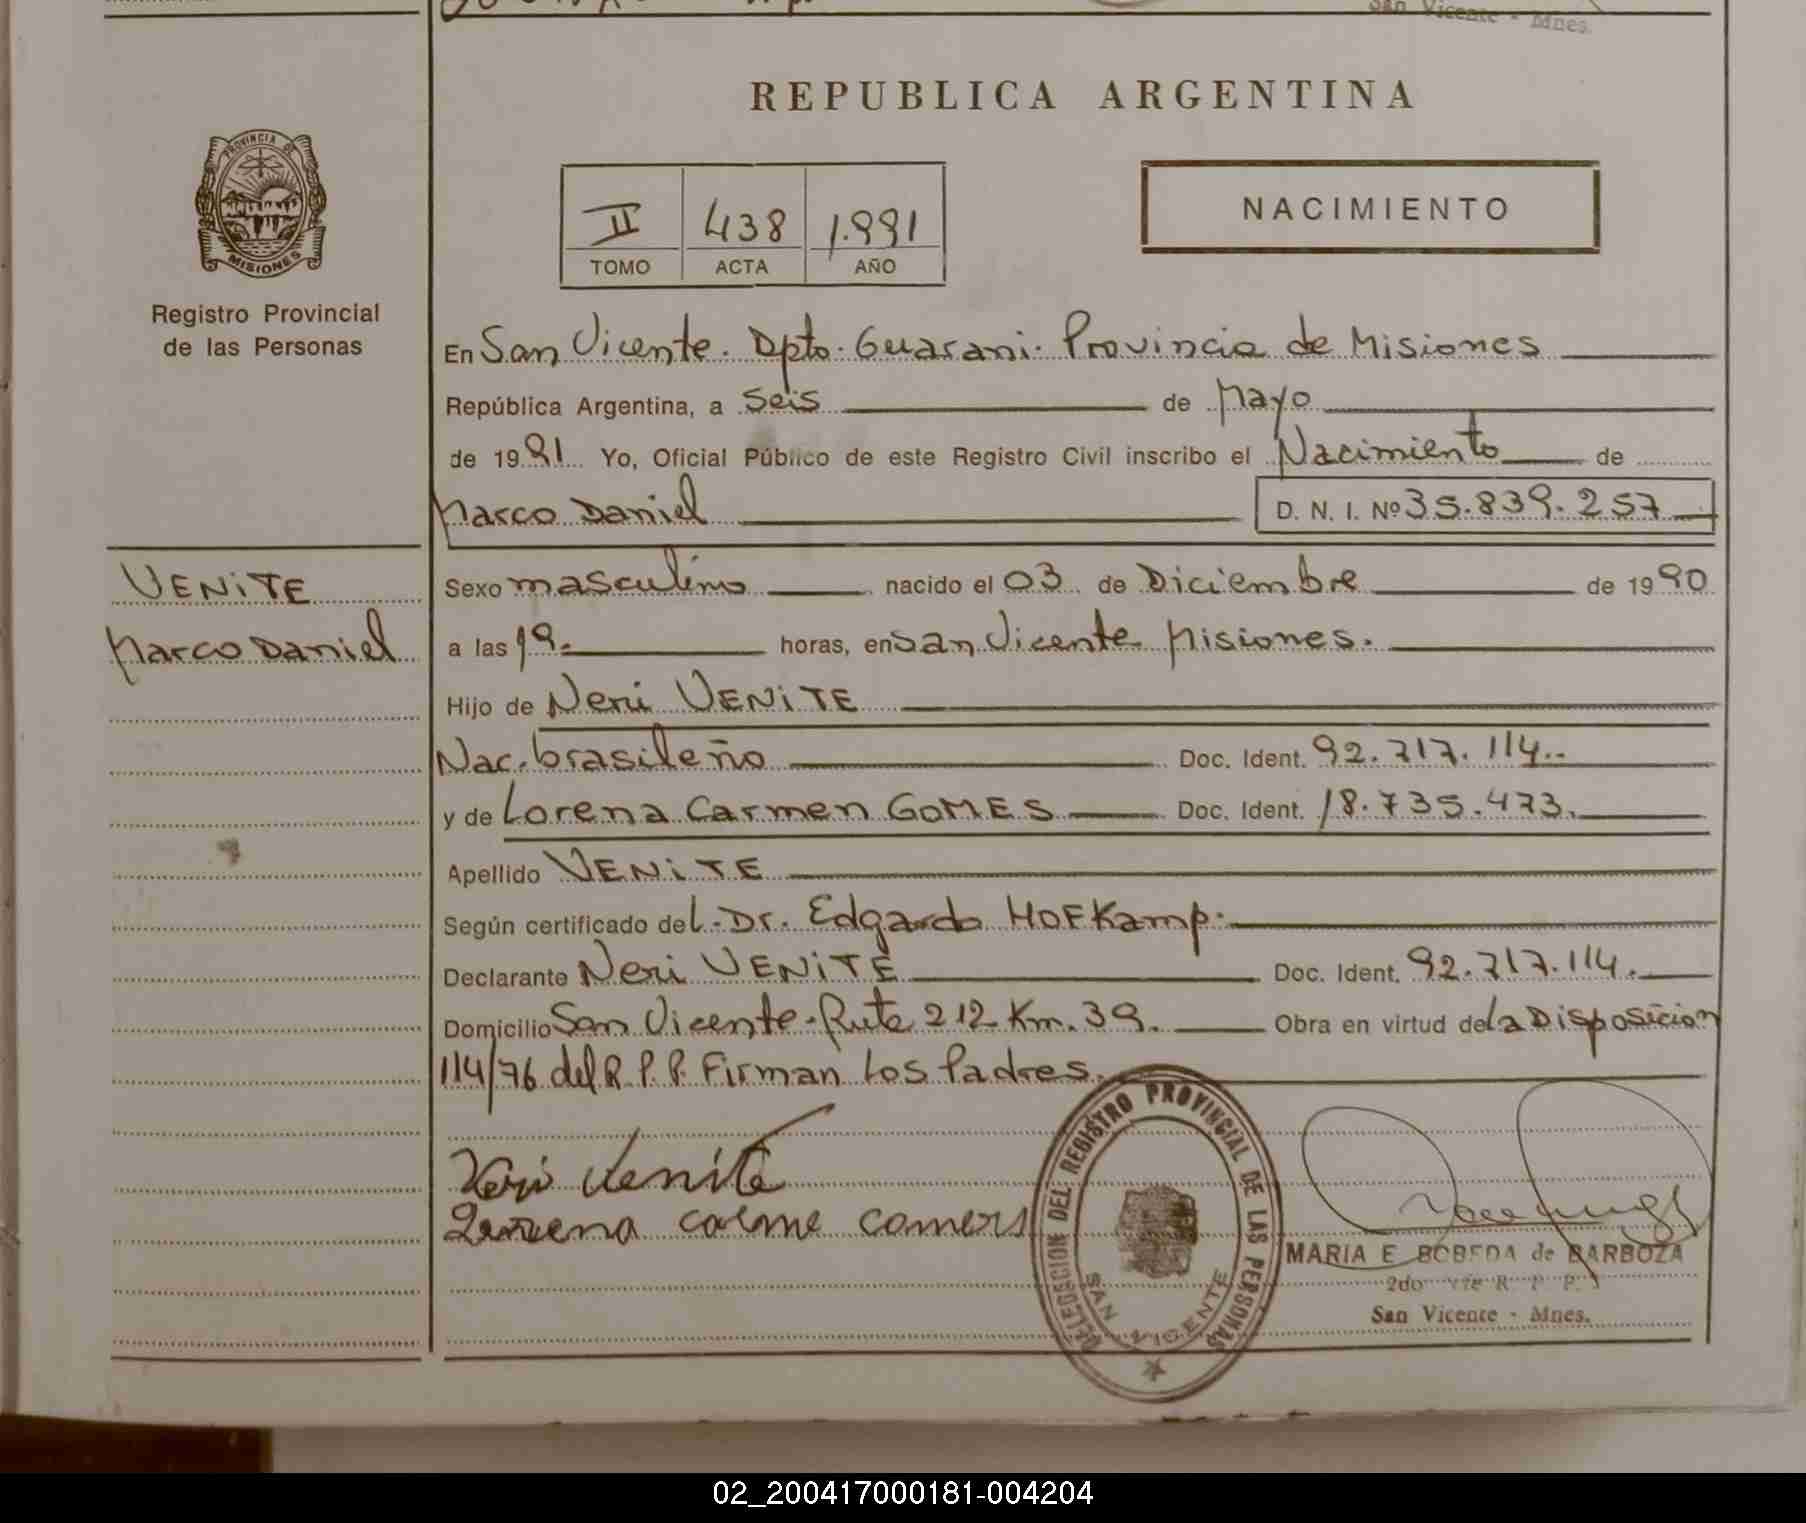 San Vicente - Mnes.
REPUBLICA ARGENTINA
PROVINCIA DE
MISIONES
Registro Provincial
de las Personas
II 438 1.991
TOMO ACTA AÑO
NACIMIENTO
En San Vicente. Dpto. Guarani. Provincia de Misiones
República Argentina, a seis de Mayo
de 1991 Yo, Oficial Público de este Registro Civil inscribo el Nacimiento de
Marco Daniel D. N. I. Nº 35.839.257
VENiTE
Marco Daniel
Sexo masculino nacido el 03 de Diciembre de 1990
a las 19. horas, en San Vicente Misiones.
Hijo de Neri VENiTE
Nac. brasileño Doc. Ident. 92.717.114..
y de Lorena Carmen GOMES Doc. Ident. 18.735.473.
Apellido VENiTE
Según certificado del Dr. Edgardo HOFKamp.
Declarante Neri VENiTE Doc. Ident. 92.717.114.
Domicilio San Vicente. Ruta 212 Km. 39. Obra en virtud de la Disposicion
114/76 del R.P.P. Firman Los Padres.
Neri Venite
DELEGACION DEL REGISTRO PROVINCIAL DE LAS PERSONAS
SAN VICENTE
MARIA E. BOBEDA de BARBOZA
2do R. P. P.
San Vicente - Mnes.
02_200417000181-004204